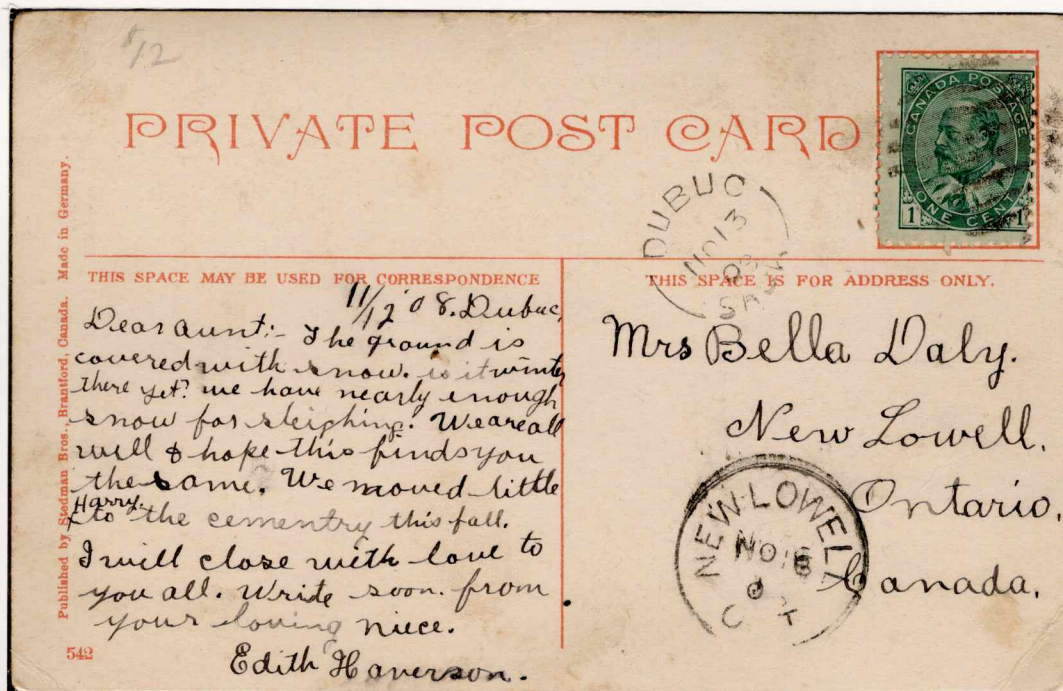 8/12
PRIVATE POST CARD
CANADA POSTAGE
1 ONE CENT 1
DUBUC
NO 13
08
SASK
Published by Stedman Bros., Brantford, Canada. Made in Germany.
THIS SPACE MAY BE USED FOR CORRESPONDENCE
11/12 '08. Dubuc,
Dear aunt:- The ground is
covered with snow. is it winter
there yet? we have nearly enough
snow for sleighing. We are all
will & hope this finds you
the same. We moved little
Harry.
to the cementry this fall.
I will close with love to
you all. Write soon. from
your loving niece.
Edith Haverson.
542
THIS SPACE IS FOR ADDRESS ONLY.
Mrs Bella Daly.
New Lowell.
Ontario.
Canada.
NEW-LOWELL
NO 16
ONT